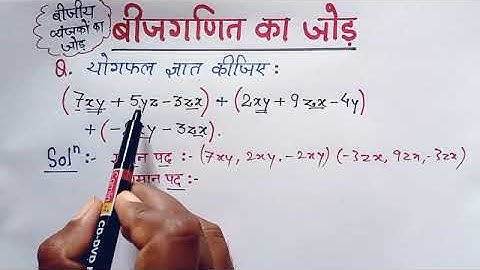 बीजीय
व्यंजकों का
जोड़
बीजगणित का जोड़
Q. योगफल ज्ञात कीजिए:
(7xy + 5yz - 3zx) + (2xy + 9zx - 4y)
+ (- xy - 3zx).
Solⁿ :- पद :- (7xy, 2xy, -2xy) (-3zx, 9zx, -3zx)
पद :-
CD-DVD